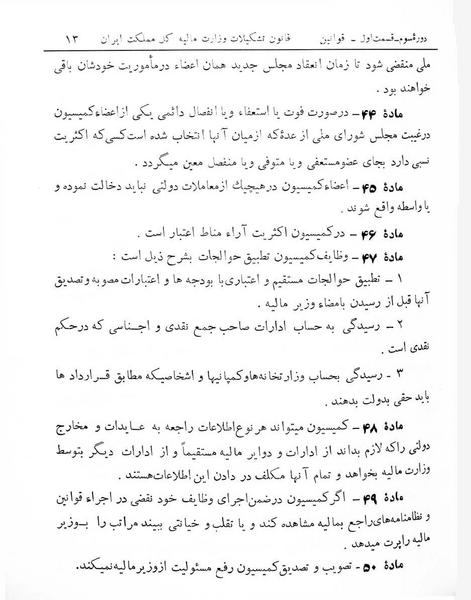 دورهٔ سوم_قسمت اول ـ قوانین قانون تشکیلات وزارت مالیه کل مملکت ایران ۱۳
ملی منقضی شود تا زمان انعقاد مجلس جدید همان اعضاء درمأموریت خودشان باقی
خواهند بود .
مادهٔ ۴۴ ـ درصورت فوت یا استعفاء ویا انفصال دائمی یکی ازاعضاءکمیسیون
درغیبت مجلس شورای ملی از عدهٔ که ازمیان آنها انتخاب شده است کسی که اکثریت
نسبی دارد بجای عضومستعفی ویا متوفی ویا منفصل معین میگردد .
مادهٔ ۴۵ ـ اعضاءکمیسیون درهیچیك ازمعاملات دولتی نباید دخالت نموده و
یاواسطه واقع شوند .
مادهٔ ۴۶ ـ درکمیسیون اکثریت آراء مناط اعتبار است .
مادهٔ ۴۷ ـ وظایف کمیسیون تطبیق حوالجات بشرح ذیل است :
۱ ـ تطبیق حوالجات مستقیم و اعتباری با بودجه ها و اعتبارات مصوبه وتصدیق
آنها قبل از رسیدن بامضاء وزیر مالیه .
۲ ـ رسیدگی به حساب ادارات صاحب جمع نقدی و اجناسی که درحکم
نقدی است .
۳ ـ رسیدگی بحساب وزارتخانه هاوکمپانیها و اشخاصیکه مطابق قرارداد ها
باید حقی بدولت بدهند .
مادهٔ ۴۸ ـ کمیسیون میتواند هرنوع اطلاعات راجعه به عایدات و مخارج
دولتی راکه لازم بداند از ادارات و دوایر مالیه مستقیماً و از ادارات دیگر بتوسط
وزارت مالیه بخواهد و تمام آنها مکلف در دادن این اطلاعات هستند .
مادهٔ ۴۹ ـ اگرکمیسیون درضمن اجرای وظایف خود نقضی در اجراء قوانین
و نظامنامه های راجع بمالیه مشاهده کند و یا تقلب و خیانتی ببیند مراتب را بوزیر
مالیه راپرت میدهد .
مادهٔ ۵۰ ـ تصویب و تصدیق کمیسیون رفع مسئولیت ازوزیر مالیه نمیکند.